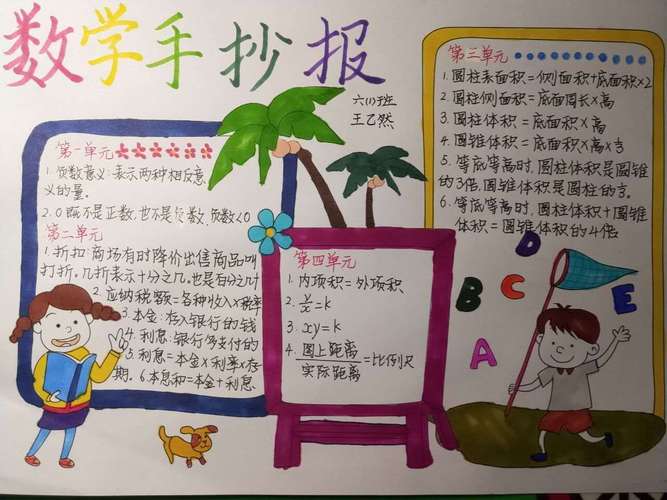 数学手抄报
六(1)班
王乙然
第一单元
1. 负数意义:表示两种相反意
义的量。
2. 0既不是正数,也不是负数,负数<0
第二单元
1. 折扣:商场有时降价出售商品叫
打折。几折表示十分之几,也是百分之几十
2. 应纳税额=各种收入×税率
3. 本金:存入银行的钱
4. 利息:银行多支付的
5. 利息=本金×利率×存
期。6. 本息和=本金+利息
第四单元
1. 内项积=外项积
2. y/x=k
3. xy=k
4. 图上距离/实际距离=比例尺
第三单元
1. 圆柱表面积=侧面积+底面积×2
2. 圆柱侧面积=底面周长×高
3. 圆柱体积=底面积×高
4. 圆锥体积=底面积×高×1/3
5. 等底等高时,圆柱体积是圆锥
的3倍,圆锥体积是圆柱的1/3。
6. 等底等高时,圆柱体积+圆锥
体积=圆锥体积的4倍
D
B
C
E
A